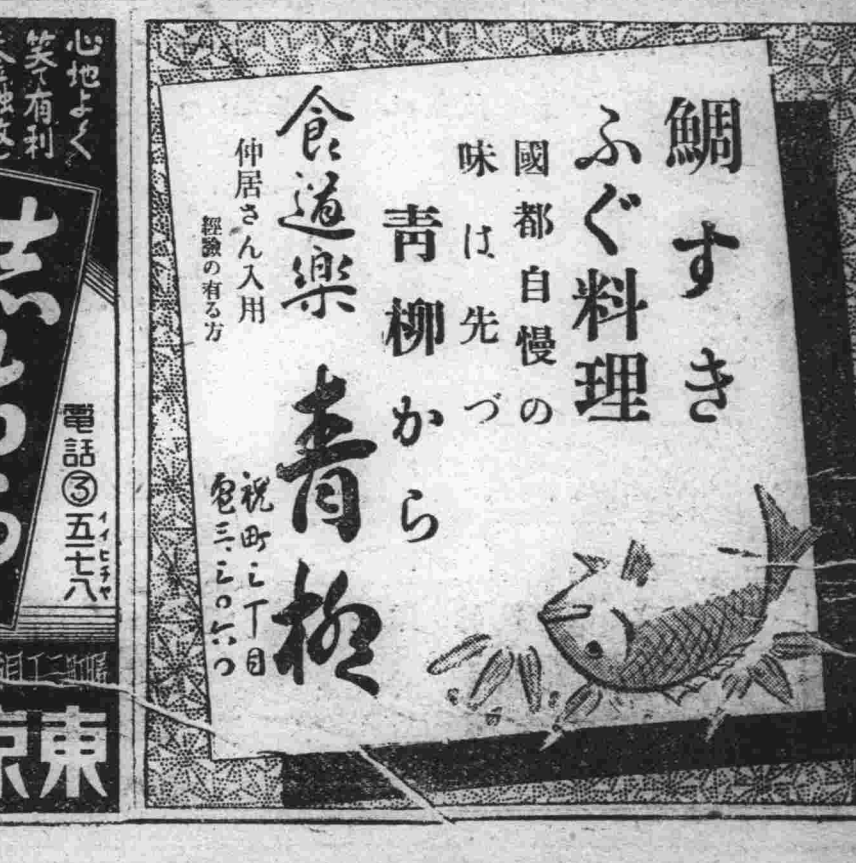 鯛すき
ふぐ料理
國都自慢の
味は先づ
青柳から
食道樂 青柳
仲居さん入用
經驗の有る方
祝町三丁目
電三・三〇六〇
心地よく
笑て有利
電話③五一七八
イイヒチヤ
東京